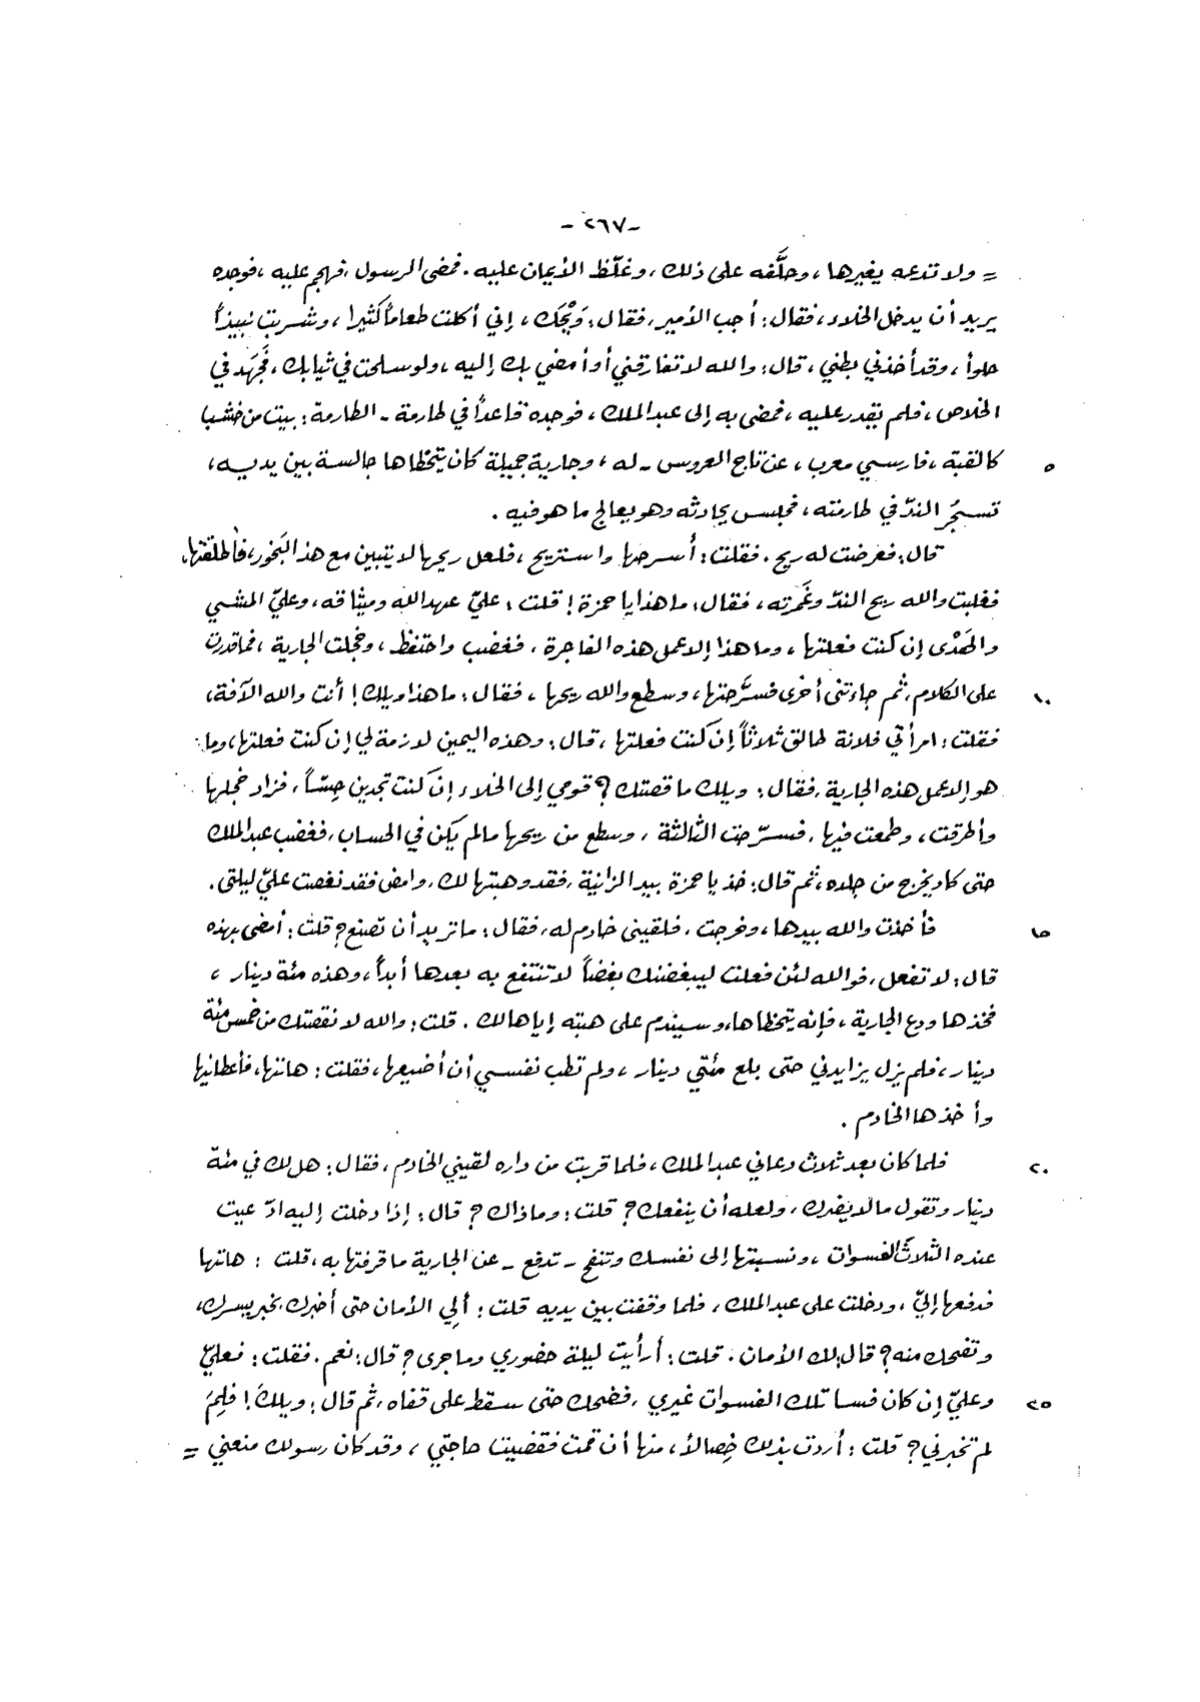 -٢٦٧-
= ولا تدعه يغيرها، وحلَّفه على ذلك، وغلّظ الأيمان عليه. فمضى الرسول، فهجم عليه، فوجده
يريد أن يدخل الخلاء، فقال: أجب الأمير، فقال: وَيْحَك، إني أكلت طعاماً كثيرا، وشربت نبيذاً
حلواً، وقد أخذني بطني، قال: والله لا تفارقني أو أمضي بك إليه، ولو سلحت في ثيابك، فجَهَد في
الخلاص، فلم يقدر عليه، فمضى به إلى عبد الملك، فوجده قاعداً في طارمة - الطارمة: بيت من خشب
٥ كالقبة، فارسي معرب، عن تاج العروس - له، وجارية جميلة كان يتحظاها جالسة بين يديه،
تسجُر الندّ في طارمته، فجلس يحادثه وهو يعالج ما هو فيه.
قال: فعرضت له ريح. فقلت: أُسرحها وأستريح، فلعل ريحها لا يتبين مع هذا البَخور، فأطلقتها،
فغلبت والله ريح الندّ وغَمَرته، فقال: ما هذا يا حمزة! قلت: عليّ عهد الله وميثاقه، وعليّ المشي
والهَدْى إن كنت فعلتها، وما هذا إلا عمل هذه الفاجرة، فغضب واحتفظ، وخجلت الجارية، فما قدرت
١٠ على الكلام، ثم جاءتنى أخرى فسرَّحتها، وسطع والله ريحها، فقال: ما هذا ويلك! أنت والله الآفة،
فقلت: امرأتي فلانة طالق ثلاثاً إن كنت فعلتها، قال: وهذه اليمين لازمة لي إن كنت فعلتها، وما
هو إلا عمل هذه الجارية، فقال: ويلك ما قصتك؟ قومي إلى الخلاء إن كنت تجدين حِسّاً، فزاد خجلها
وأطرقت، وطمعت فيها، فسرّحت الثالثة، وسطع من ريحها ما لم يكن في الحساب، فغضب عبد الملك
حتى كاد يخرج من جلده، ثم قال: خذ يا حمزة بيد الزانية، فقد وهبتها لك، وامض فقد نغصت عليّ ليلتى.
١٥ فأخذت والله بيدها، وخرجت، فلقينى خادم له، فقال: ما تريد أن تصنع؟ قلت: أمضى بهذه
قال: لا تفعل، فوالله لئن فعلت ليبغضنك بغضاً لا تنتفع به بعدها أبداً، وهذه مئة دينار،
فخذها ودع الجارية، فإنه يتحظاها، وسيندم على هبته إياها لك. قلت: والله لا نقصتك من خمس مئة
دينار، فلم يزل يزايدني حتى بلغ مئتي دينار، ولم تطب نفسي أن أضيعها، فقلت: هاتها، فأعطانيها
وأخذها الخادم.
٢٠ فلما كان بعد ثلاث دعاني عبد الملك، فلما قربت من داره لقيني الخادم، فقال: هل لك في مئة
دينار وتقول ما لا يضرك، ولعله أن ينفعك؟ قلت: وما ذاك؟ قال: إذا دخلت إليه ادّعيت
عنده الثلاث الفسوات، ونسبتها إلى نفسك وتنفح - تدفع - عن الجارية ما قرفتها به، قلت: هاتها
فدفعها إليّ، ودخلت على عبد الملك، فلما وقفت بين يديه قلت: ألِي الأمان حتى أخبرك بخبر يسرك،
وتضحك منه؟ قال: لك الأمان. قلت: أرأيت ليلة حضوري وما جرى؟ قال: نعم. فقلت: فعليّ
٢٥ وعليّ إن كان فسا تلك الفسوات غيري، فضحك حتى سقط على قفاه، ثم قال: ويلك! فلِمَ
لم تخبرني؟ قلت: أردت بذلك خِصالاً، منها أن قمت فقضيت حاجتي، وقد كان رسولك منعني =